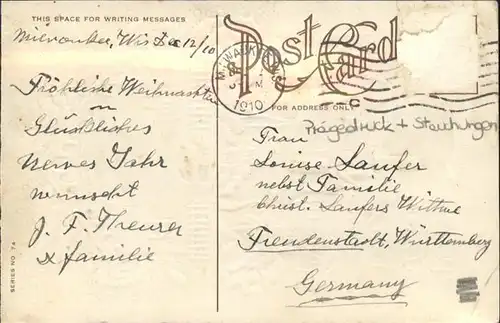 THIS SPACE FOR WRITING MESSAGES
Post Card
Milwaukee, Wis Dec 12/10
MILWAUKEE, WIS.
1910
FOR ADDRESS ONLY
Fröhliche Weihnachten
u
Glückliches
Neues Jahr
wünscht
J. F. Theurer
& familie
Prägedruck + Stauchungen
Frau
Louise Laufer
nebst Familie
Christ. Laufers Witwe
Freudenstadt, Württemberg
Germany
SERIES NO. 7a